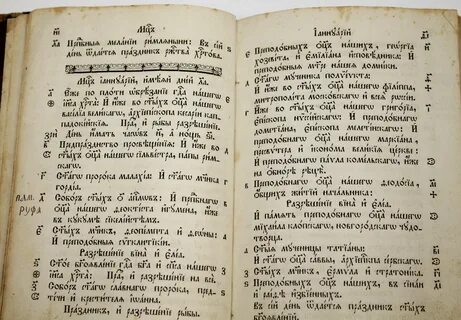 Мц҃ъ
Прп҇бныѧ меланїи римлѧныни: Въ сі́й
день ѿдаетсѧ праздникъ ржⷭ҇тва хрⷭ҇това.
Мцъ іаннꙋарїй, имѣѧй дній ла҃.
Еже по плоти ѡбрѣзанїе гдⷭ҇а нашегѡ
іи҃са хрⷭ҇та̀: И иже во ст҃ыхъ ѻц҃а нашегѡ
василїа великагѡ, архїепⷭ҇кпа кесарїи кап-
падокїйскїѧ. Пра, и рыбы разрѣшенїе.
День имать часѡвъ, а нощь
Предпразднство просвѣщенїѧ: И иже во
ст҃ыхъ ѻц҃а нашегѡ сѵльвестра, папы рим-
скагѡ.
Ст҃агѡ пророка малахїи: И ст҃агѡ мч҃нка
гордїа.
Соборъ ст҃ыхъ ѻ҃ апⷭ҇лѡвъ: И прпⷣбнагѡ
ѻц҃а нашегѡ ѳеоктїста игꙋмена, иже
въ кꙋкꙋмѣ сїкелїйстѣмъ.
Ст҃ыхъ мч҃нкъ, ѳеопемпта и ѳеѡны:
И преподобныѧ сѵгклитикїи.
Разрѣшенїе вїна и елеа.
Ст҃ое бг҃оѧвленїе гдⷭ҇а бг҃а и сп҃са нашегѡ
іи҃са хрⷭ҇та̀: Пра, И разрѣшенїе на всѐ.
Соборъ ст҃агѡ славнагѡ пророка, пред-
течи и крестителѧ іѡанна.
Праздникъ, и разрѣшенїе рыбы.
РУФА
Іаннꙋарїй
Преподобныхъ ѻц҃ъ нашихъ, георгїа
хозевїта, и емилїана исповѣдника: И
преподобныѧ мт҃ре нашеѧ домники.
Ст҃агѡ мученика полїеѵкта:
И иже во ст҃ыхъ ѻц҃а нашегѡ філїппа,
митрополита московскагѡ и всеѧ рѡссїи.
Иже во ст҃ыхъ ѻц҃а нашегѡ григорїа,
епⷭ҇кпа нѵсскагѡ: И преподобнагѡ
дометїана, епⷭ҇кпа мелетинскагѡ: И
преподобнагѡ ѻц҃а нашегѡ маркїана,
пресвѵтера и їконома великїѧ церкве: И
преподобнагѡ ѻц҃а павла комельскагѡ, иже
на обнорѣ рецѣ.
Преподобнагѡ ѻц҃а нашегѡ ѳеодосїа,
общихъ житїй начальника:
Разрѣшенїе вїна и елеа.
И память преподобнагѡ ѻц҃а нашегѡ
міхаила клопскагѡ, новгородскагѡ чꙋдо-
творца.
Ст҃ыѧ мученицы татїаны:
И ст҃агѡ саввы, архїепⷭ҇кпа сербскагѡ.
Ст҃ыхъ мч҃нкъ, ермѵла и стратоника.
Преподобныхъ ѻц҃ъ, иже въ сінаи
и раиѳѣ избїенныхъ.
Въ сі́й день ѿдаетсѧ праздникъ ст҃ыхъ